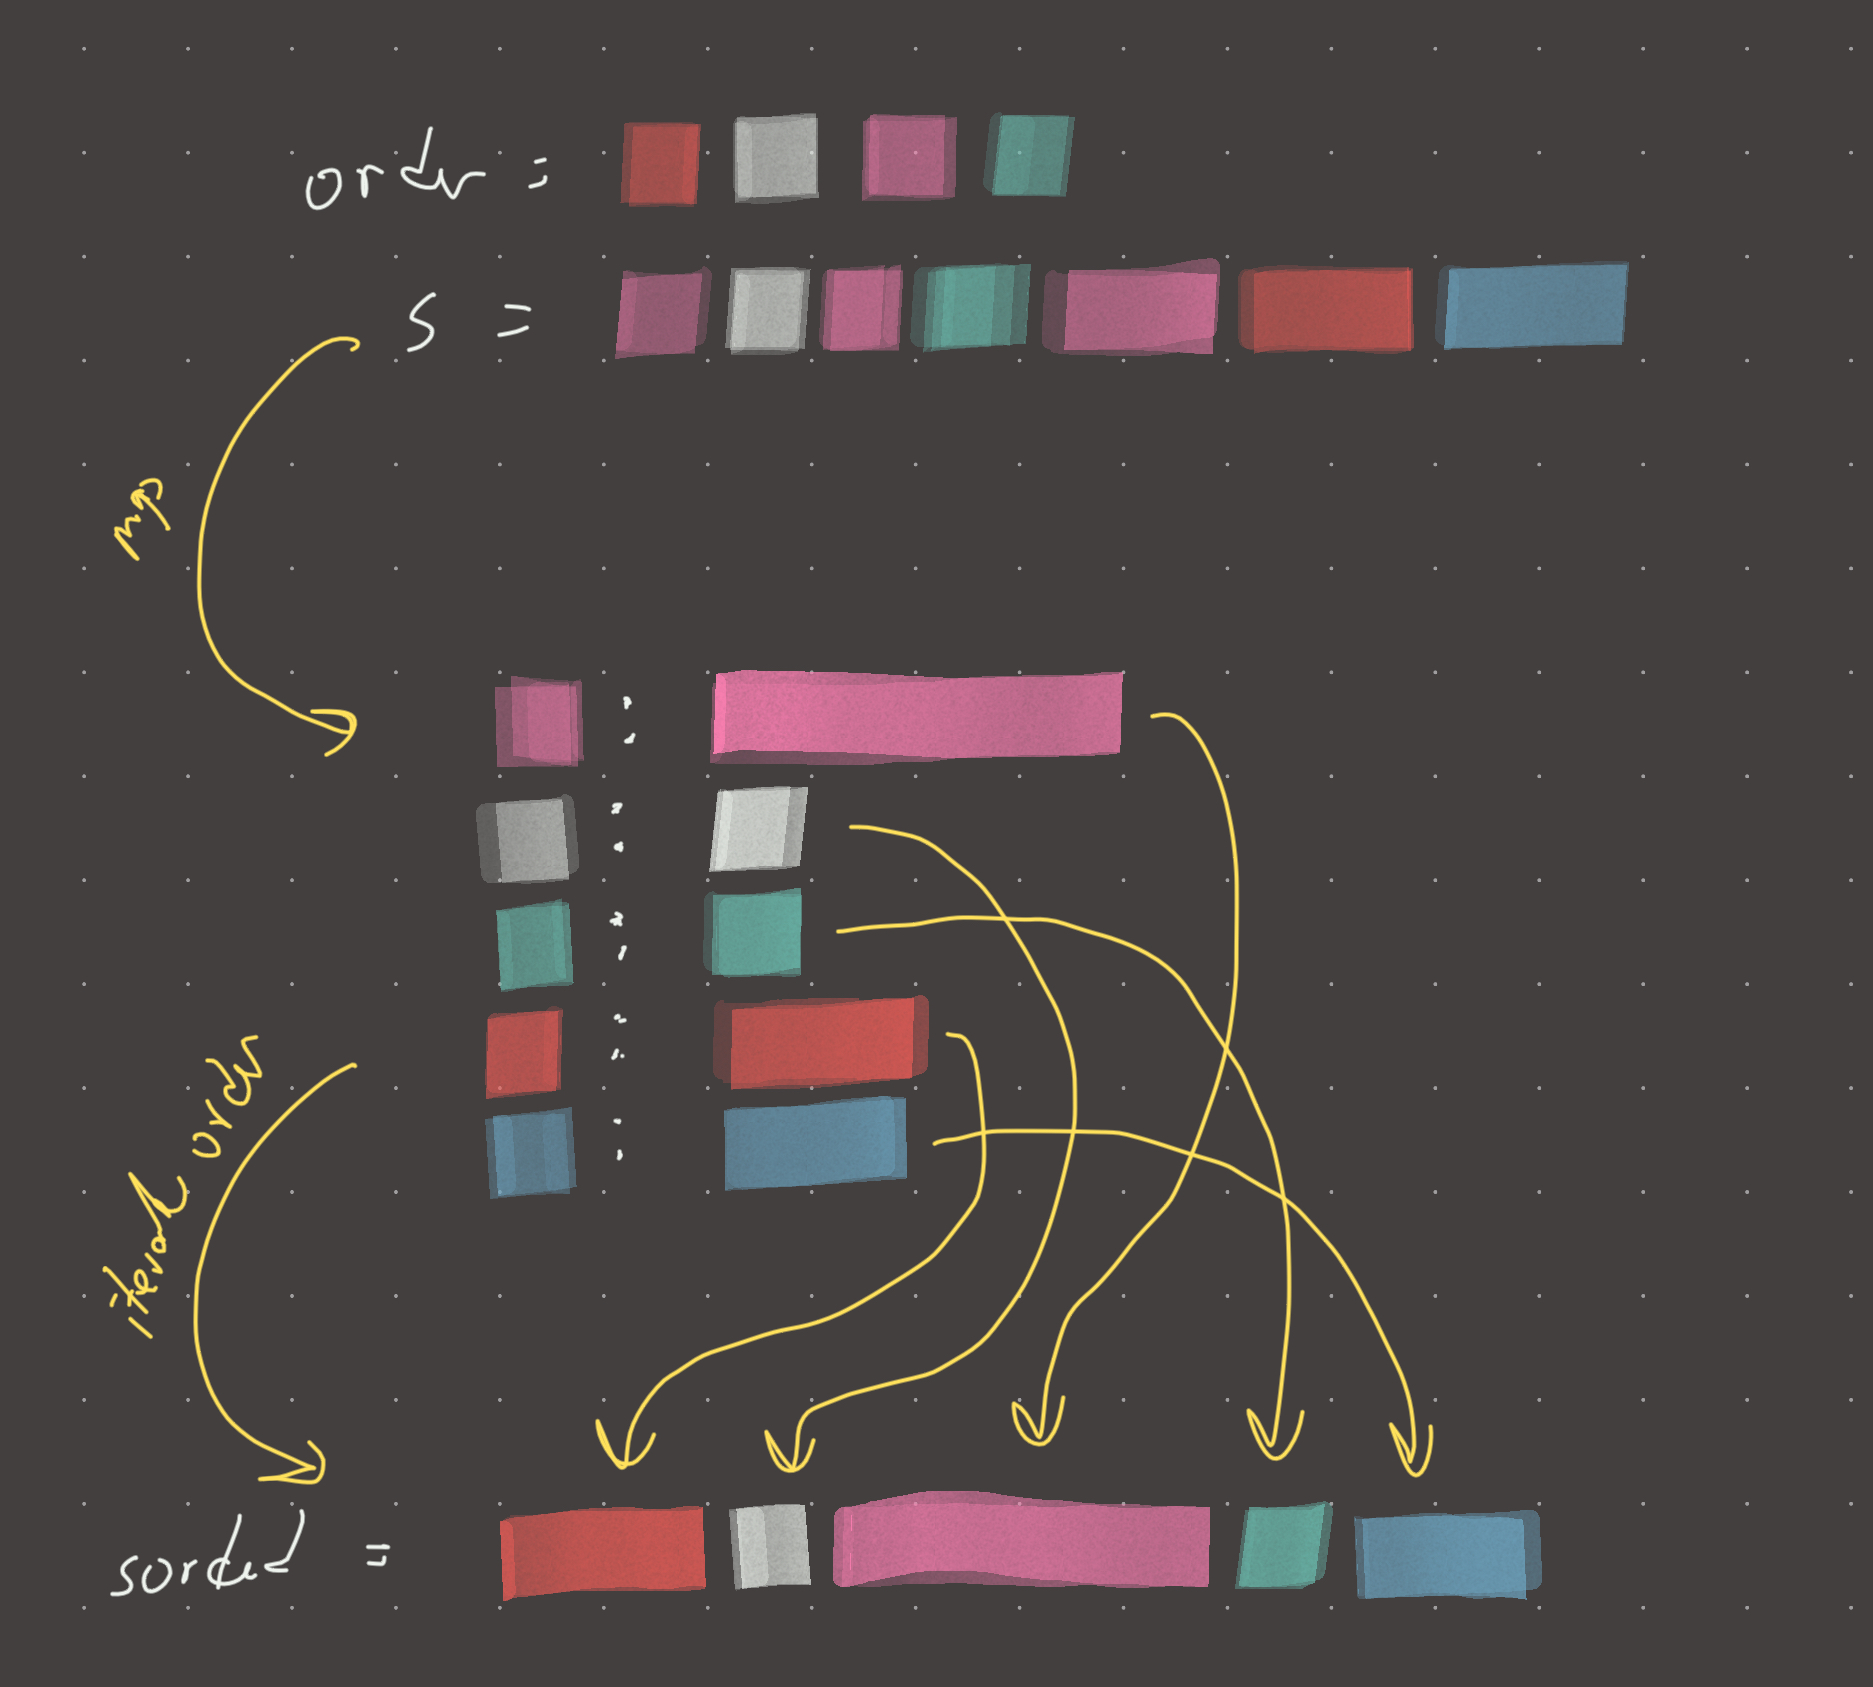 order =
s =
map
:
:
:
:
:
iterate order
sorted =